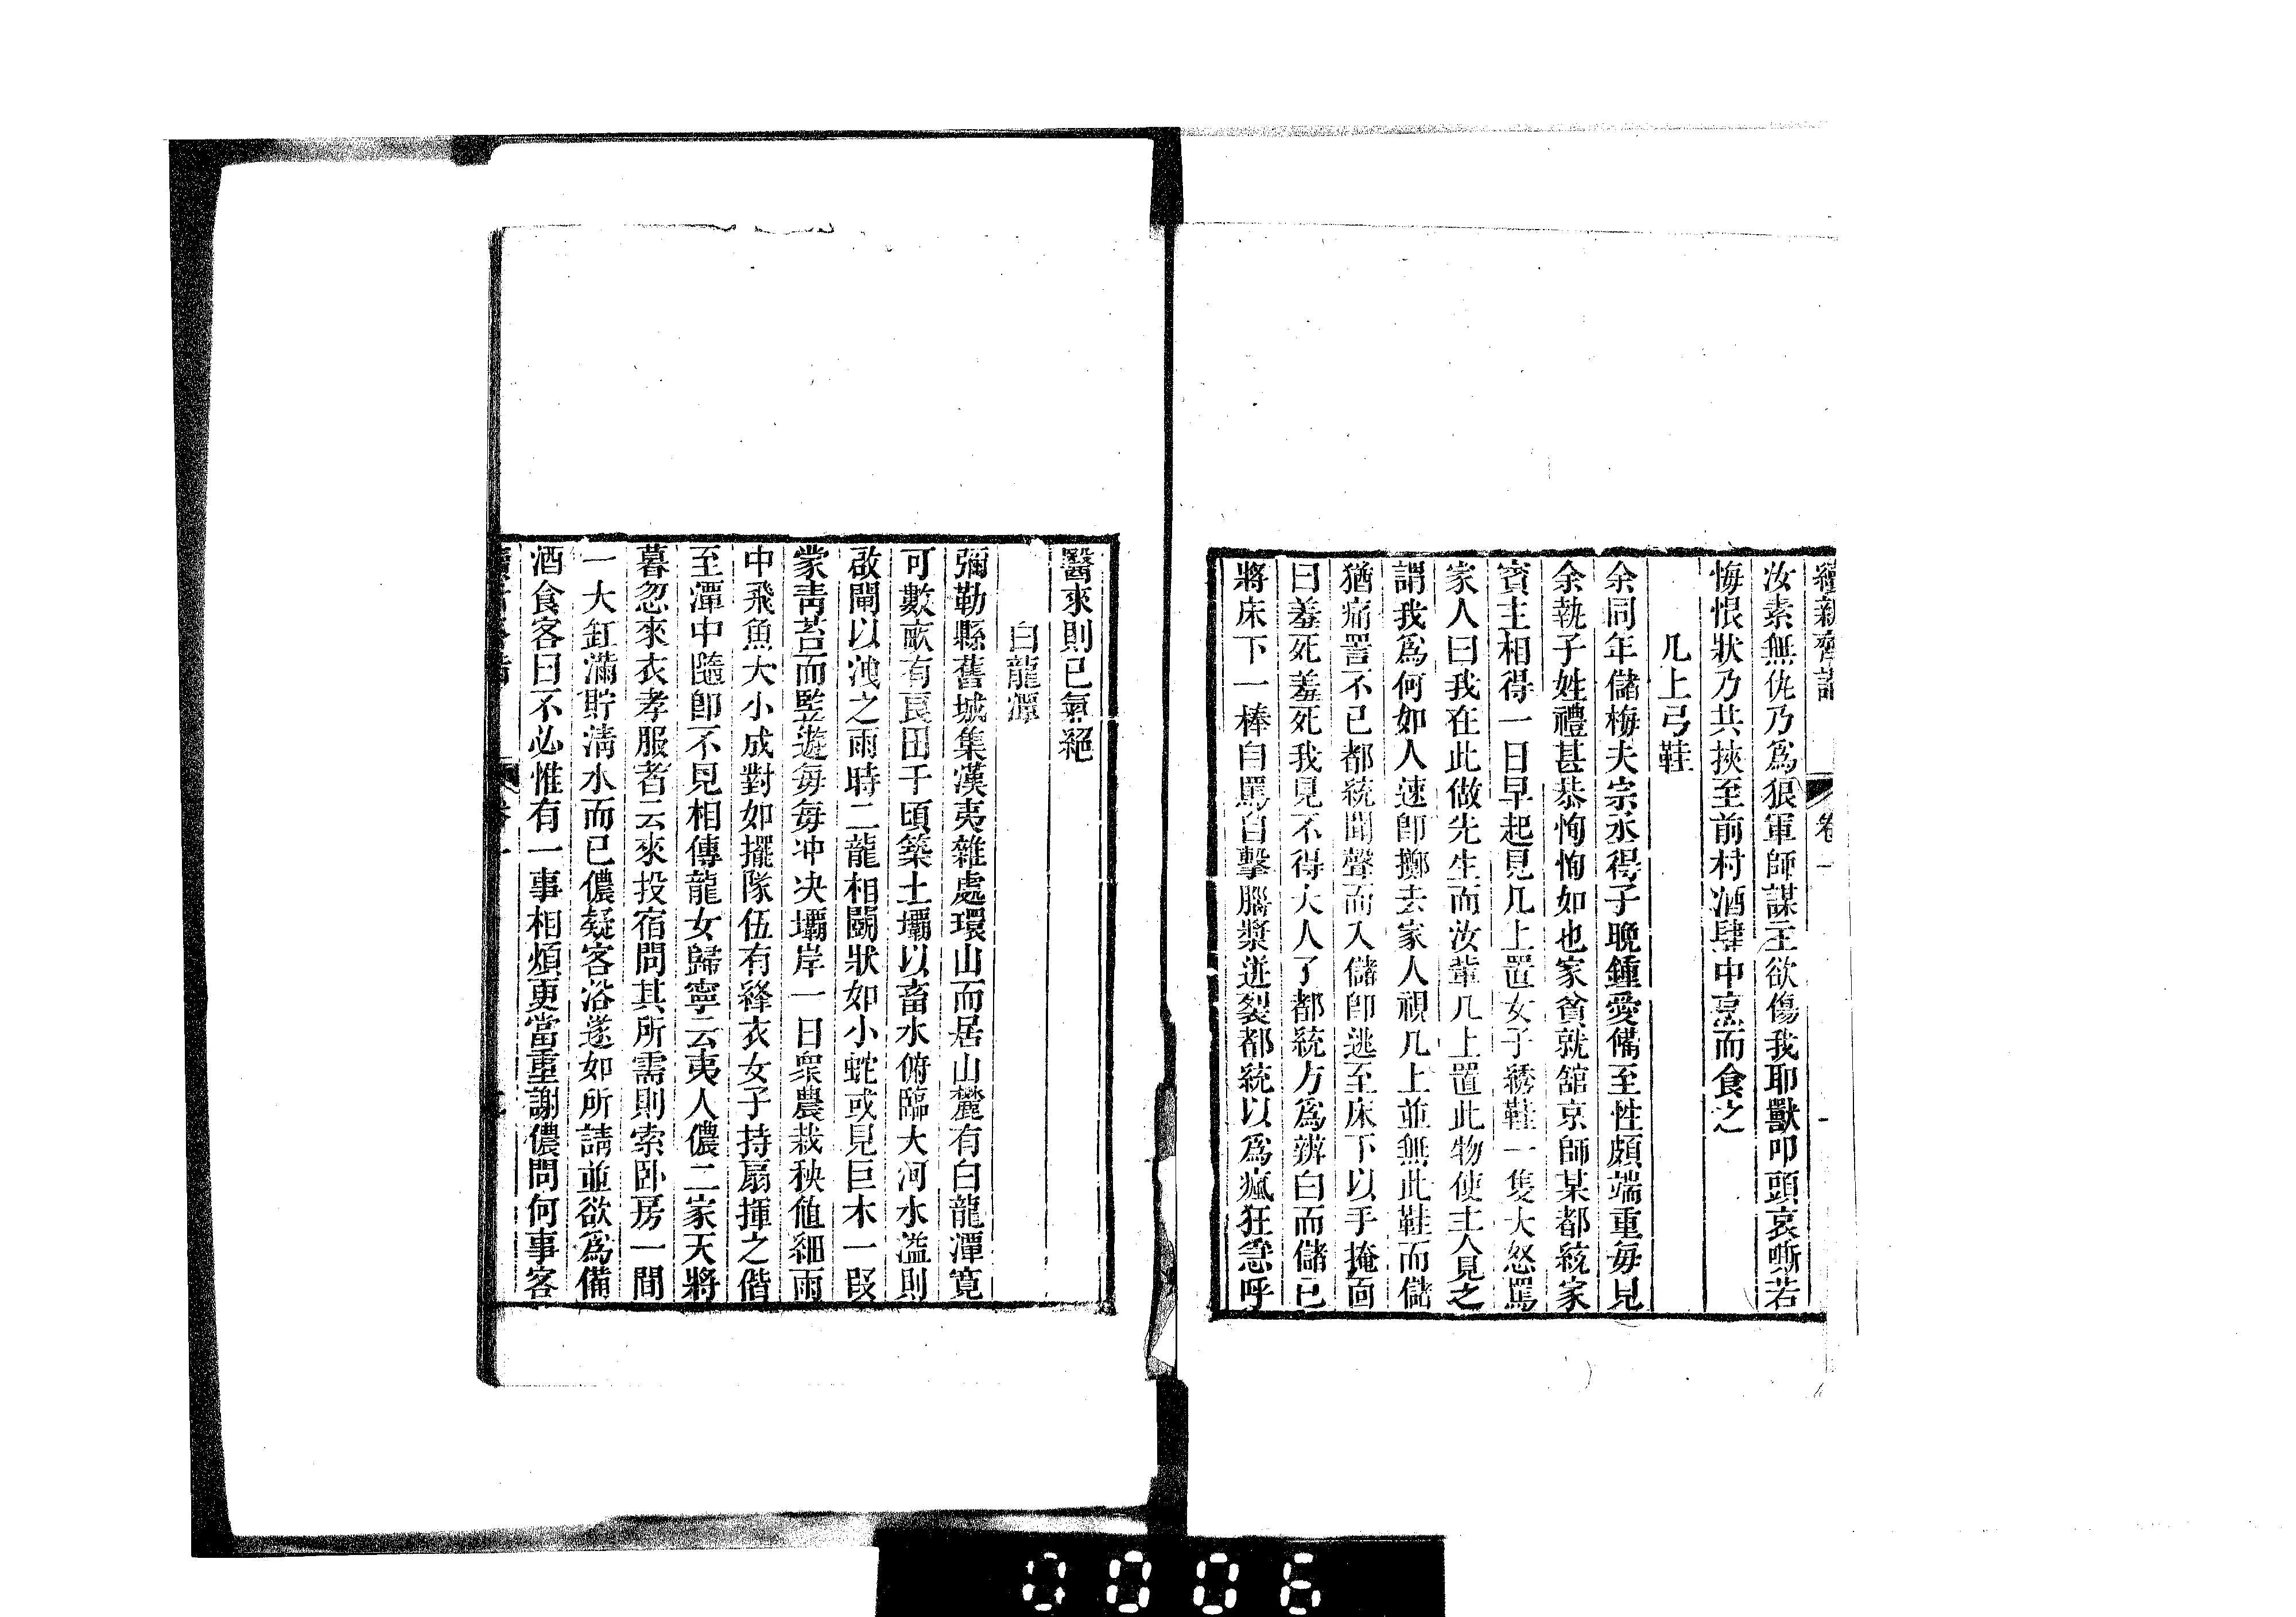 續新齊諧 卷一
汝素無仇乃爲狠軍師謀主欲傷我耶獸叩頭哀嘶若
悔恨狀乃共挾至前村酒肆中烹而食之
几上弓鞋
余同年儲梅夫宗丞得子晚鍾愛備至性頗端重每見
余執子姪禮甚恭恂恂如也家貧就舘京師某都統家
賓主相得一日早起見几上置女子綉鞋一隻大怒罵
家人曰我在此做先生而汝輩几上置此物使主人見之
謂我爲何如人速卽擲去家人視几上並無此鞋而儲
猶痛詈不已都統聞聲而入儲卽逃至床下以手掩面
曰羞死羞死我見不得大人了都統方爲辨白而儲已
將床下一棒自罵自擊腦漿迸裂都統以爲瘋狂急呼
醫來則已氣絕
白龍潭
彌勒縣舊城集漢夷雜處環山而居山麓有白龍潭寬
可數畝有良田千頃築土壩以畜水俯臨大河水溢則
啟閘以洩之雨時二龍相鬭狀如小蛇或見巨木一段
蒙靑苔而豎遊每每冲决壩岸一日衆農栽秧値細雨
中飛魚大小成對如擺隊伍有絳衣女子持扇揮之偕
至潭中隨卽不見相傳龍女歸寧云夷人儂二家天將
暮忽來衣孝服者云來投宿問其所需則索卧房一間
一大缸滿貯淸水而已儂疑客浴遂如所請並欲爲備
酒食客曰不必惟有一事相煩更當重謝儂問何事客